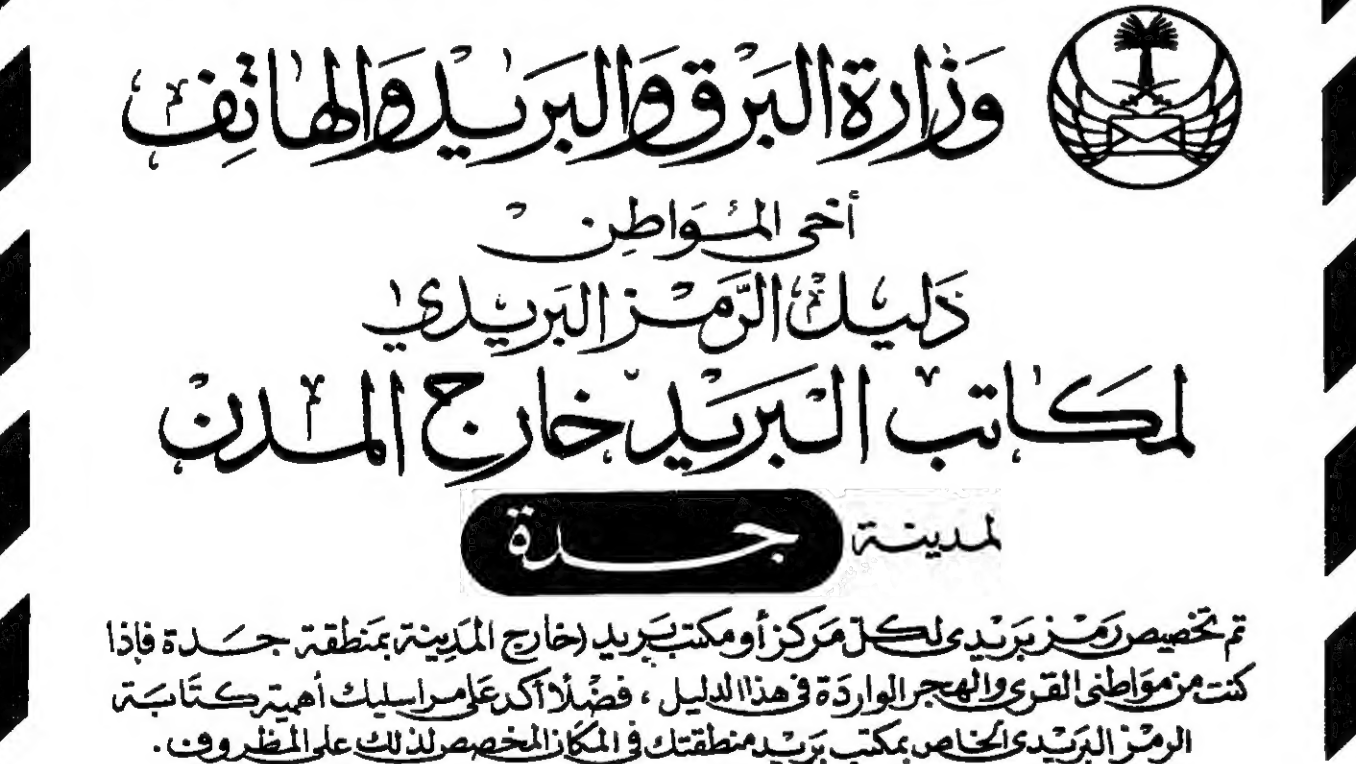 وزارة البرق والبريد والهاتف
أخي المواطن
دليل الرمز البريدي
لمكاتب البريد خارج المدن
لمدينة جدة
تم تخصيص رمز بريدى لكل مركز أو مكتب بريد (خارج المدينة بمنطقة جدة فإذا
كنت من مواطنى القرى والهجر الواردة فى هذا الدليل ، فضلاً أكد على مراسليك أهمية كتابة
الرمز البريدى الخاص بمكتب بريد منطقتك فى المكان المخصص لذلك على المظروف .